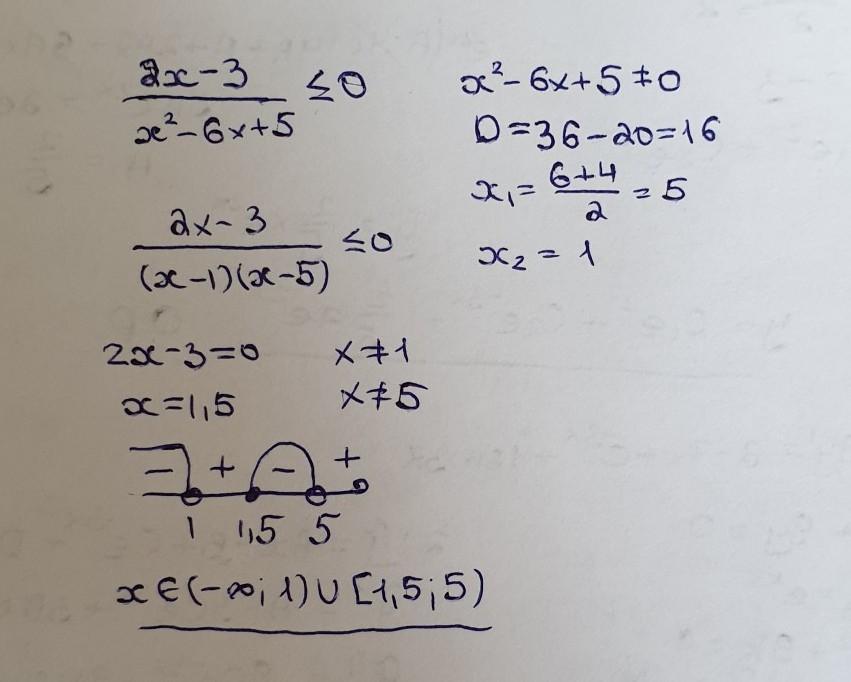 2x-3 / x²-6x+5 ≤ 0
x²-6x+5≠0
D=36-20=16
x₁= 6+4 / 2 = 5
x₂ = 1
2x-3 / (x-1)(x-5) ≤0
2x-3=0 x≠1
x=1,5 x≠5
- + - +
1 1,5 5
x∈(-∞; 1)∪[1,5;5)